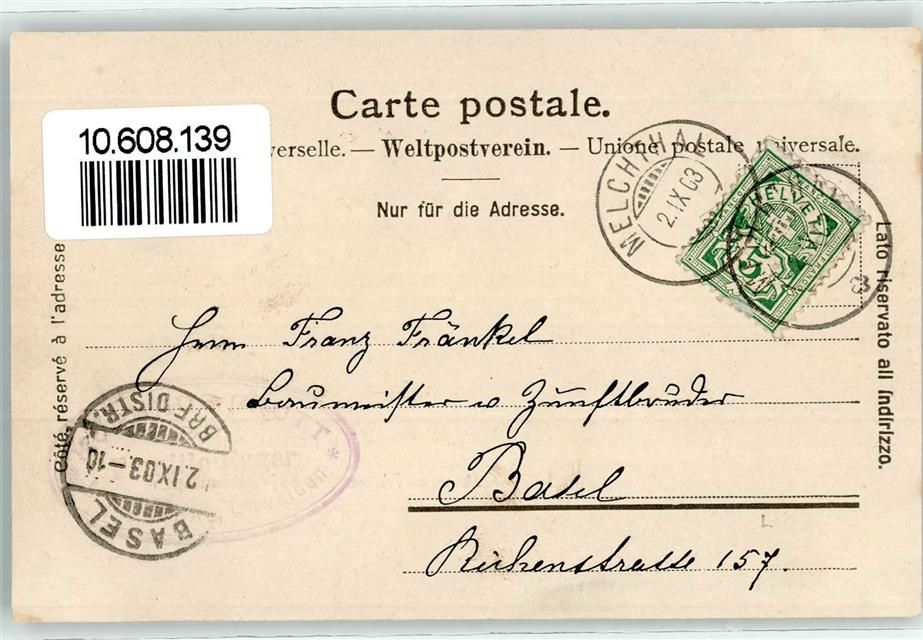 Carte postale.
10.608.139
verselle. — Weltpostverein. — Unione postale universale.
Nur für die Adresse.
Côté réservé à l'adresse
Lato riservato all indirizzo.
MELCHTHAL
2.IX.03
HELVETIA
5
FRANCO
Herrn Franz Fränkel
Baumeister u Zunftbruder
Basel
157.
BASEL
2.IX.03-10
BRF. DISTR.